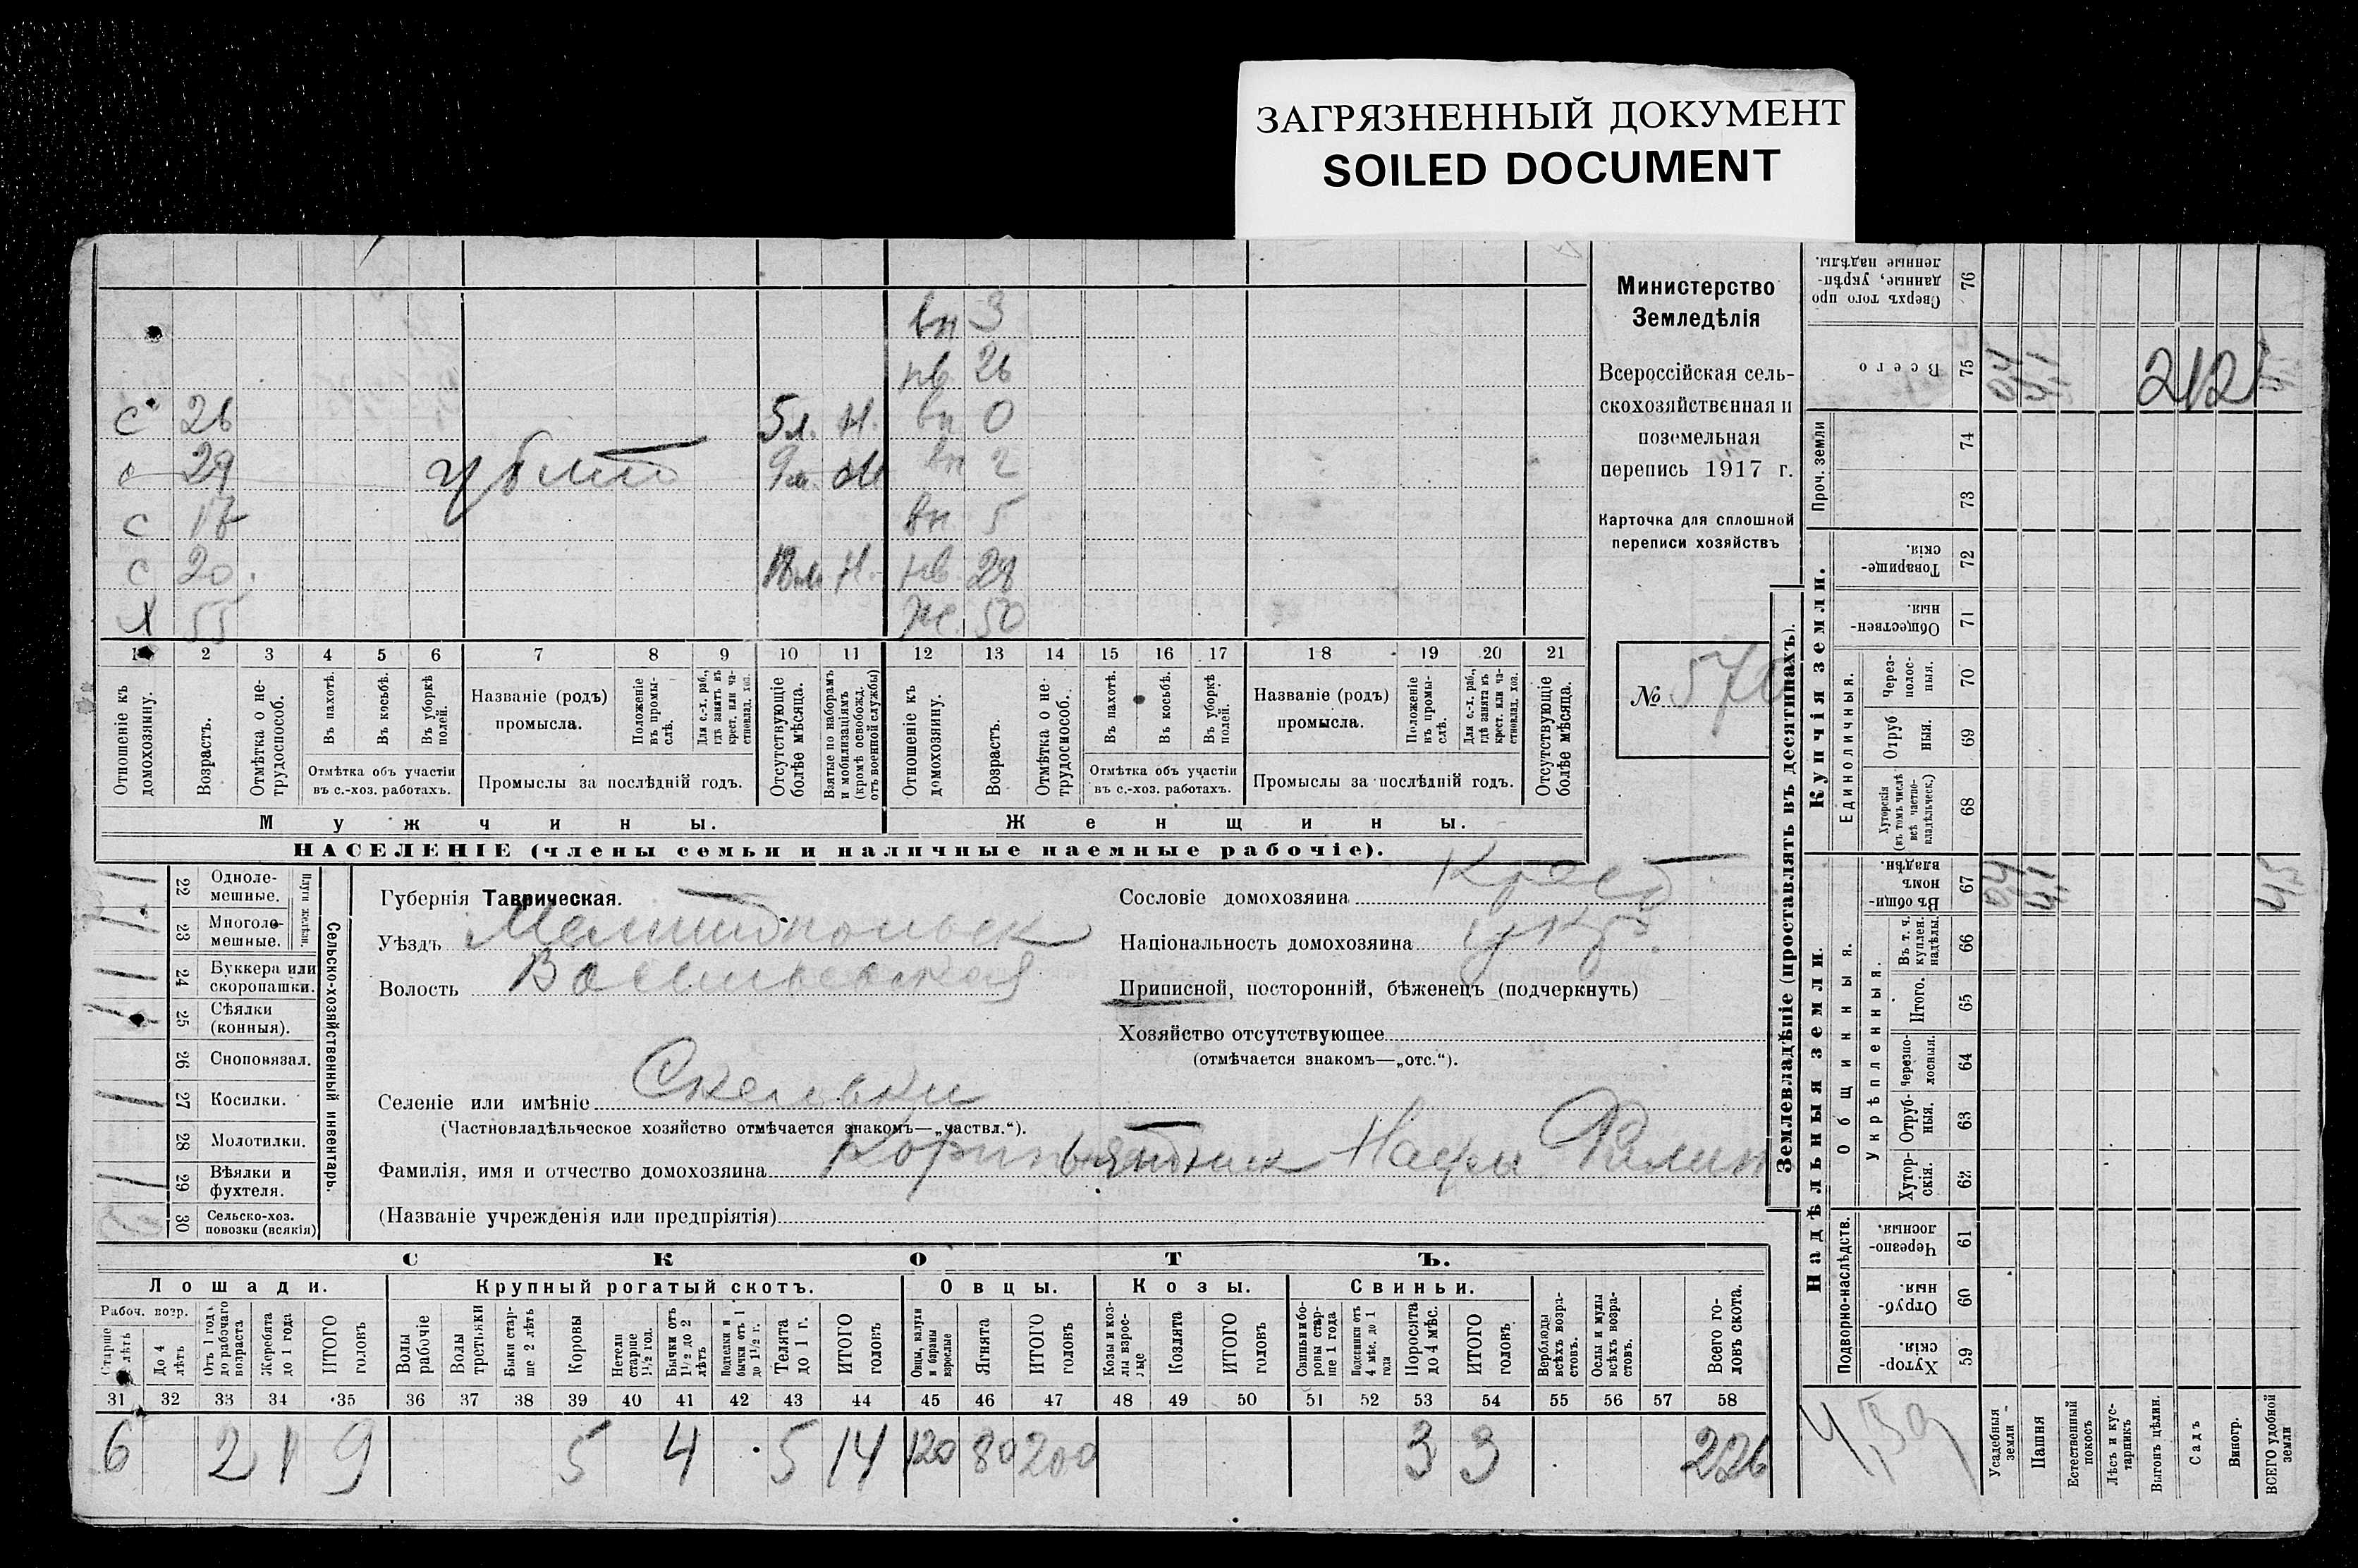 ЗАГРЯЗНЕННЫЙ ДОКУМЕНТ
SOILED DOCUMENT
вн 3
нв 26
с 26 5 л. Н. вн 0
с 29 убит 9 м. М вн 2
с 17 вн 5
с 20 Н. нв. 28
Х 55 Ж. 50
1 2 3 4 5 6 7 8 9 10 11 12 13 14 15 16 17 18 19 20 21
Отношеніе къ домохозяину.
Возрастъ.
Отмѣтка о нетрудоспособ.
Въ пахотѣ.
Въ косьбѣ.
Въ уборкѣ полей.
Отмѣтка объ участіи въ с.-хоз. работахъ.
Названіе (родъ) промысла.
Положеніе въ промыслѣ.
Для с.-х. раб., гдѣ занятъ въ крест. или частновлад. хоз.
Промыслы за послѣдній годъ.
Отсутствующіе болѣе мѣсяца.
Взятые по наборамъ и мобилизаціямъ (кромѣ освобожд. отъ военной службы)
Отношеніе къ домохозяину.
Возрастъ.
Отмѣтка о не трудоспособ.
Въ пахотѣ.
Въ косьбѣ.
Въ уборкѣ полей.
Отмѣтка объ участіи въ с.-хоз. работахъ.
Названіе (родъ) промысла.
Положеніе въ промыслѣ.
Для с.-х. раб., гдѣ занята въ крест. или частновлад. хоз.
Промыслы за послѣдній годъ.
Отсутствующіе болѣе мѣсяца.
Мужчины.
Женщины.
НАСЕЛЕНІЕ (члены семьи и наличные наемные рабочіе).
Министерство
Земледѣлія
Всероссійская сель-
скохозяйственная и
поземельная
перепись 1917 г.
Карточка для сплошной
переписи хозяйствъ
№ 570
22 Одноле-мешные.
23 Многоле-мешные.
Плуги желѣзн.
24 Буккера или скоропашки.
25 Сѣялки (конныя).
26 Сноповязал.
27 Косилки.
28 Молотилки.
29 Вѣялки и фухтеля.
30 Сельско-хоз. повозки (всякія)
Сельско-хозяйственный инвентарь.
Губернія Таврическая.
Уѣздъ Мелитопольск
Волость Васильевская
Селеніе или имѣніе Скельки
(Частновладѣльческое хозяйство отмѣчается знакомъ—„частвл.“).
Фамилія, имя и отчество домохозяина
(Названіе учрежденія или предпріятія)
Сословіе домохозяина Крест
Національность домохозяина укр.
Приписной, посторонній, бѣженецъ (подчеркнуть)
Хозяйство отсутствующее
(отмѣчается знакомъ—„отс.“).
СКОТЪ.
Лошади. Крупный рогатый скотъ. Овцы. Козы. Свиньи.
Рабоч. возр.
Старше лѣтъ
До 4 лѣтъ
Отъ 1 года до рабочаго возраста
Жеребята до 1 года
ИТОГО головъ
Волы рабочіе
Волы третьяки
Быки старше 2 лѣтъ
Коровы
Нетели старше 1½ год.
Бычки отъ 1½ до 2 лѣтъ
Подтелки и бычки отъ 1 до 1½ г.
Телята до 1 г.
ИТОГО головъ
Овцы, валухи и бараны взрослые
Ягнята
ИТОГО головъ
Козы и козлы взрослые
Козлята
ИТОГО головъ
Свиньи и бороны старше 1 года
Подсвинки отъ 4 мѣс. до 1 года
Поросята до 4 мѣс.
ИТОГО головъ
Верблюды всѣхъ возрастовъ.
Ослы и мулы всѣхъ возрастовъ.
Всего головъ скота.
31 32 33 34 35 36 37 38 39 40 41 42 43 44 45 46 47 48 49 50 51 52 53 54 55 56 57 58
6 2 1 9 5 4 5 14 120 80 200 3 3 226
Землевладѣніе (проставлять въ десятинахъ).
Сверхъ того проданные, укрѣпленные надѣлы. 76
Всего 75 0,4 4,1 212
Проч. земли 74 73
Купчія земли.
Товарищескія. 72
Общественныя. 71
Единоличныя.
Черезполосныя. 70
Отрубныя. 69
Хуторскія (въ томъ числѣ всѣ частновладѣльческ.) 68
Надѣльныя земли.
Общинныя.
Въ общинномъ владѣн. 67 0,4 4,1 4,5
Укрѣпленныя.
Въ т. ч. куплен. надѣлы. 66
Итого. 65
Черезполосныя. 64
Отрубныя. 63
Хуторскія. 62
Подворно-наслѣдств.
Черезполосныя. 61
Отрубныя. 60
Хуторскія. 59
Усадебныя земли
Пашня
Естественный покосъ
Лѣсъ и кустарникъ
Выгонъ цѣлин.
Садъ
Виногр.
ВСЕГО удобной земли